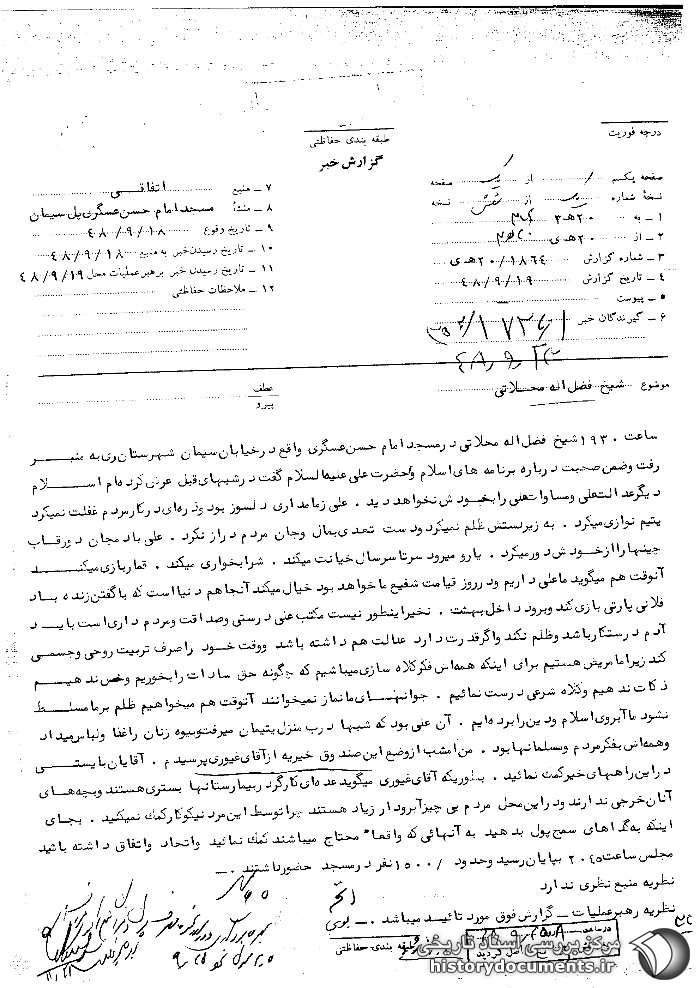 درجه فوریت
طبقه بندی حفاظتی
گزارش خبر
صفحه یکم از یک صفحه
نسخهٔ شماره یک از شش نسخه
۱ – به ۲۰ هـ ۳
۲ – از ۲۰ هـ ی
۳ – شماره گزارش ۲۰/۱۸۶۴ هـ ی
۴ – تاریخ گزارش ۴۸/۹/۱۹
۵ – پیوست
۶ – گیرندگان خبر
۷ – منبع اتفاقی
۸ – منشأ مسجد امام حسن عسگری پل سیمان
۹ – تاریخ وقوع ۴۸/۹/۱۸
۱۰ – تاریخ رسیدن خبر به منبع ۴۸/۹/۱۸
۱۱ – تاریخ رسیدن خبر برهبر عملیات محل ۴۸/۹/۱۹
۱۲ – ملاحظات حفاظتی
موضوع شیخ فضل اله محلاتی
عطف
پیرو
ساعت ۱۹۳۰ شیخ فضل اله محلاتی در مسجد امام حسن عسگری واقع در خیابان سیمان شهرستان ری به منبر
رفت وضمن صحبت درباره برنامه های اسلام وحضرت علی علیه السلام گفت در شبهای قبل عرض کرده ام اسلام
دیگر عدالت علی ومساوات علی را بخودش نخواهد دید . علی زمامداری دلسوز بود وذره ای در کار مردم غفلت نمیکرد
یتیم نوازی میکرد . به زیردستش ظلم نمیکرد ودست تعدی بمال وجان مردم دراز نکرد . علی بادمجان دور قاب
چینها را از خودش دور میکرد . یارو میرود سر تا سر سال خیانت میکند . شرابخواری میکند . قماربازی میکند
آنوقت هم میگوید ما علی داریم ودر روز قیامت شفیع ما خواهد بود خیال میکند آنجا هم دنیا است که با گفتن زنده باد
فلانی پارتی بازی کند وبرود داخل بهشت . نخیر اینطور نیست مکتب علی درستی وصداقت ومردم داری است باید
آدم درستکار باشد وظلم نکند واگر قدرت دارد عدالت هم داشته باشد ووقت خود را صرف تربیت روحی وجسمی
کند زیرا ما مریض هستیم برای اینکه همه اش فکر کلاه سازی میباشیم که چگونه حق سادات را بخوریم وخمس ندهیم
ذکات ندهیم وکلاه شرعی درست نمائیم . جوانهای ما نماز نمیخوانند آنوقت هم میخواهیم ظلم بر ما مسلط
نشود ما آبروی اسلام ودین را برده ایم . آن علی بود که شبها درب منزل یتیمان میرفت وبیوه زنان را غذا ولباس میداد
وهمه اش بفکر مردم ومسلمانها بود . من امشب از وضع این صندوق خیریه از آقای غیوری پرسیدم . آقایان بایستی
در این راههای خیر کمک نمائید . بطوریکه آقای غیوری میگوید عده ای کارگر در بیمارستانها بستری هستند وبچه های
آنان خرجی ندارند ودر این محل مردم بی چیز آبرودار زیاد هستند چرا توسط این مرد نیکوکار کمک نمیکنید . بجای
اینکه به گداهای سمج پول بدهید به آنهائی که واقعاً محتاج میباشند کمک نمائید واتحاد واتفاق داشته باشید
مجلس ساعت ۲۰۴۵ بپایان رسید وحدود ۱۵۰۰/ نفر در مسجد حضور داشتند .
نظریه منبع نظری ندارد
نظریه رهبر عملیات – گزارش فوق مورد تائید میباشد .
طبقه بندی حفاظتی
مرکز بررسی اسناد تاریخی
historydocuments.ir